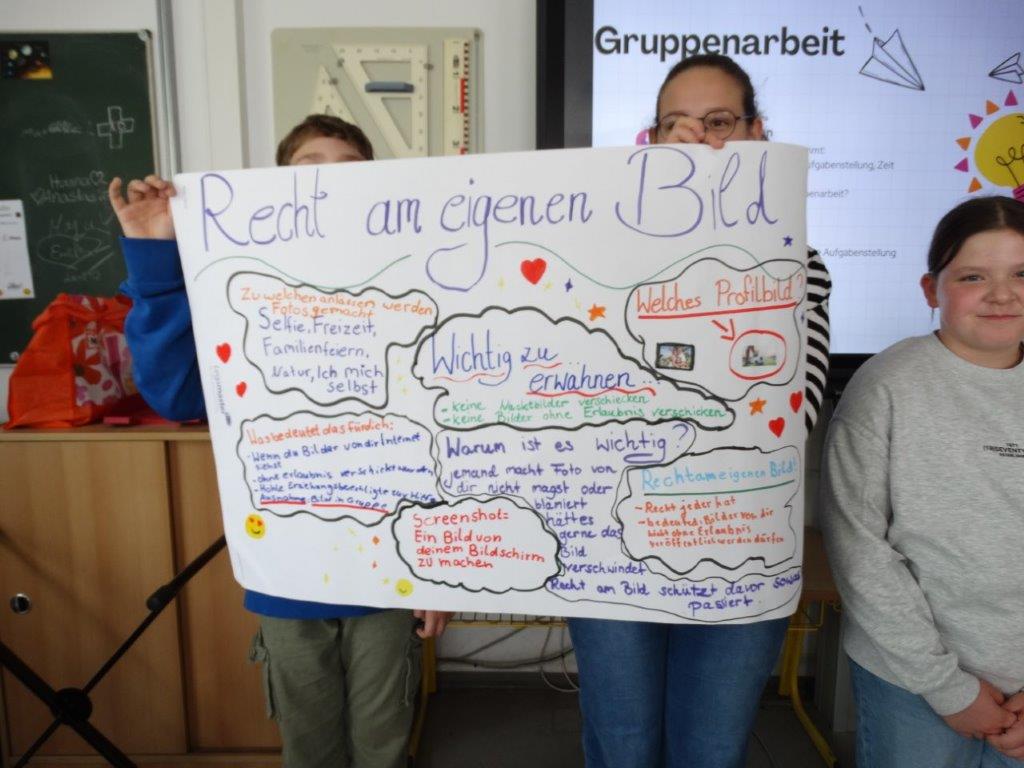 Gruppenarbeit
ufgabenstellung, Zeit
e Aufgabenstellung
Recht am eigenen Bild
Zu welchen anlässen werden
Fotos gemacht
Selfie, Freizeit,
Familienfeiern,
Natur, Ich mich
selbst
Wichtig zu
erwähnen...
- keine Nacktbilder verschicken
- keine Bilder ohne Erlaubnis verschicken
Welches Profilbild?
Was bedeutet das für dich:
- Wenn du Bilder von dir Internet
siehst
- ohne erlaubnis verschickt wurden
- Hohle Erziehungsberechtigte zur Hilfe
Ausnahme: Bild in Gruppe
Warum ist es wichtig?
jemand macht Foto von
dir nicht magst oder
blamiert
hättes
gerne das
Bild
verschwindet
Recht am Bild schützt davor sowas
passiert.
Screenshot:
Ein Bild von
deinem Bildschirm
zu machen
Recht am eigenen Bild!
- Recht jeder hat
- bedeuted, Bilder von dir
nicht ohne Erlaubnis
veröffentlicht werden dürfen